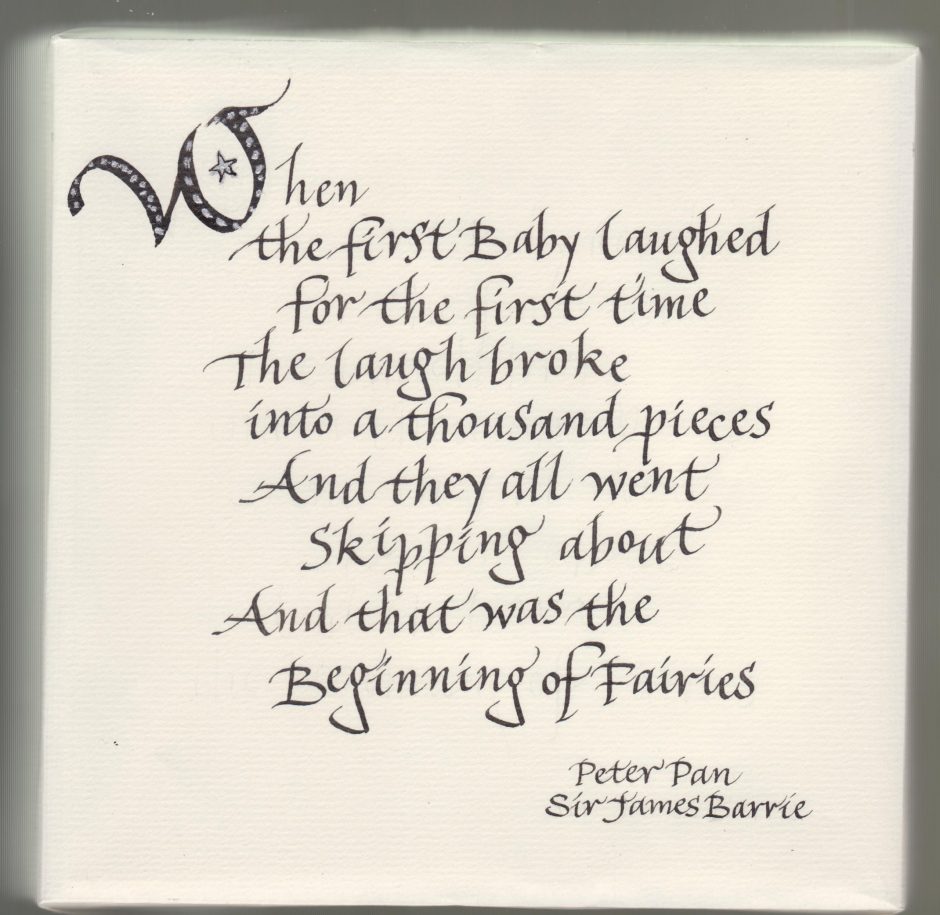 When
the first Baby laughed
for the first time
The laugh broke
into a thousand pieces
And they all went
Skipping about
And that was the
Beginning of Fairies
Peter Pan
Sir James Barrie